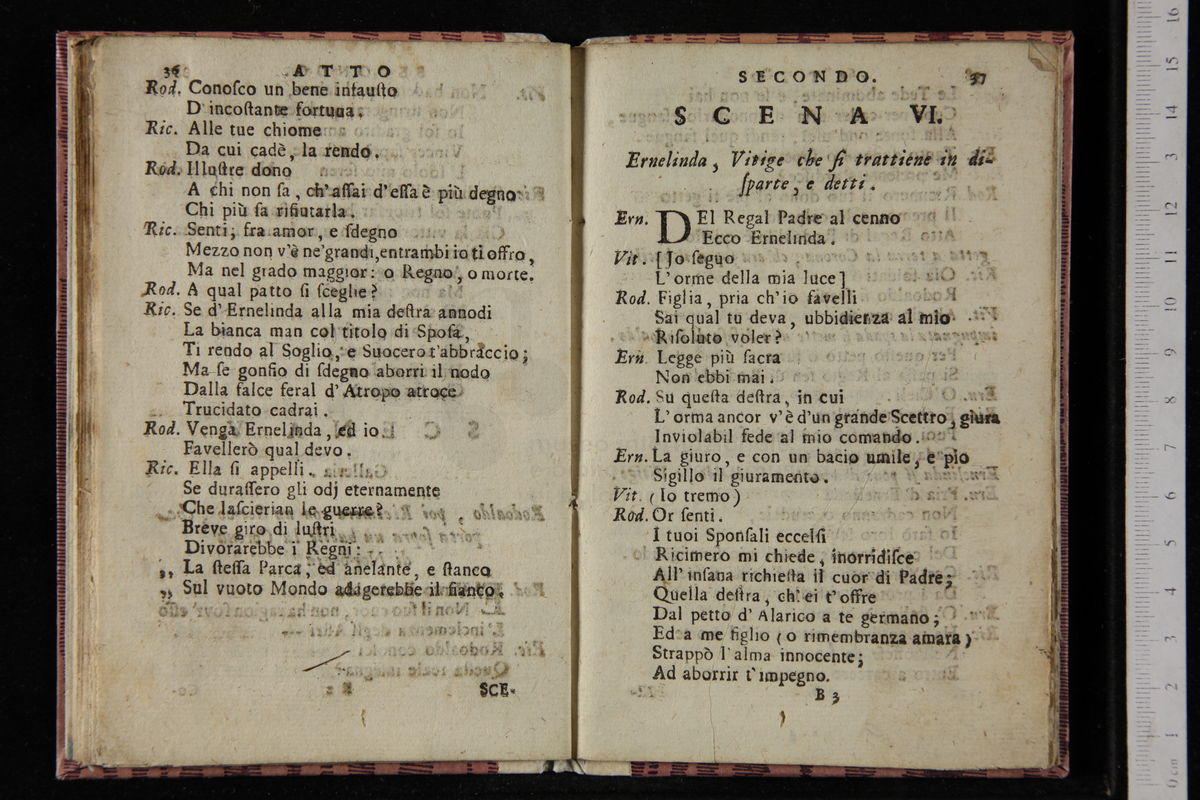 36 ATTO
Rod. Conoſco un bene infauſto
D'incoſtante fortuna.
Ric. Alle tue chiome
Da cui cadè, la rendo.
Rod. Illuſtre dono
A chi non ſa, ch'aſſai d'eſſa è più degno
Chi più ſa rifiutarla.
Ric. Senti; fra amor, e ſdegno
Mezzo non v'è ne'grandi, entrambi io ti offro,
Ma nel grado maggior: o Regno, o morte.
Rod. A qual patto ſi ſceglie?
Ric. Se d'Ernelinda alla mia deſtra annodi
La bianca man col titolo di Spoſa,
Ti rendo al Soglio, e Suocero t'abbraccio;
Ma ſe gonfio di ſdegno aborri il nodo
Dalla falce feral d'Atropo atroce
Trucidato cadrai.
Rod. Venga Ernelinda, ed io
Favellerò qual devo.
Ric. Ella ſi appelli.
Se duraſſero gli odj eternamente
Che laſcierian le guerre?
Breve giro di luſtri
Divorarebbe i Regni:
„ La ſteſſa Parca, ed anelante, e ſtanca
„ Sul vuoto Mondo adagerebbe il fianco.
SCE-
SECONDO. 37
SCENA VI.
Ernelinda, Vitige che ſi trattiene in di-
ſparte, e detti.
Ern. DEl Regal Padre al cenno
Ecco Ernelinda.
Vit. [Jo ſeguo
L'orme della mia luce]
Rod. Figlia, pria ch'io favelli
Sai qual tu deva, ubbidienza al mio
Riſoluto voler?
Ern. Legge più ſacra
Non ebbi mai.
Rod. Su queſta deſtra, in cui
L'orma ancor v'è d'un grande Scettro, giura
Inviolabil fede al mio comando.
Ern. La giuro, e con un bacio umile, e pio
Sigillo il giuramento.
Vit. (Io tremo)
Rod. Or ſenti.
I tuoi Sponſali eccelſi
Ricimero mi chiede, inorridiſce
All'inſana richieſta il cuor di Padre;
Quella deſtra, ch'ei t'offre
Dal petto d'Alarico a te germano;
Ed a me figlio (o rimembranza amara)
Strappò l'alma innocente;
Ad aborrir t'impegno.
B 3